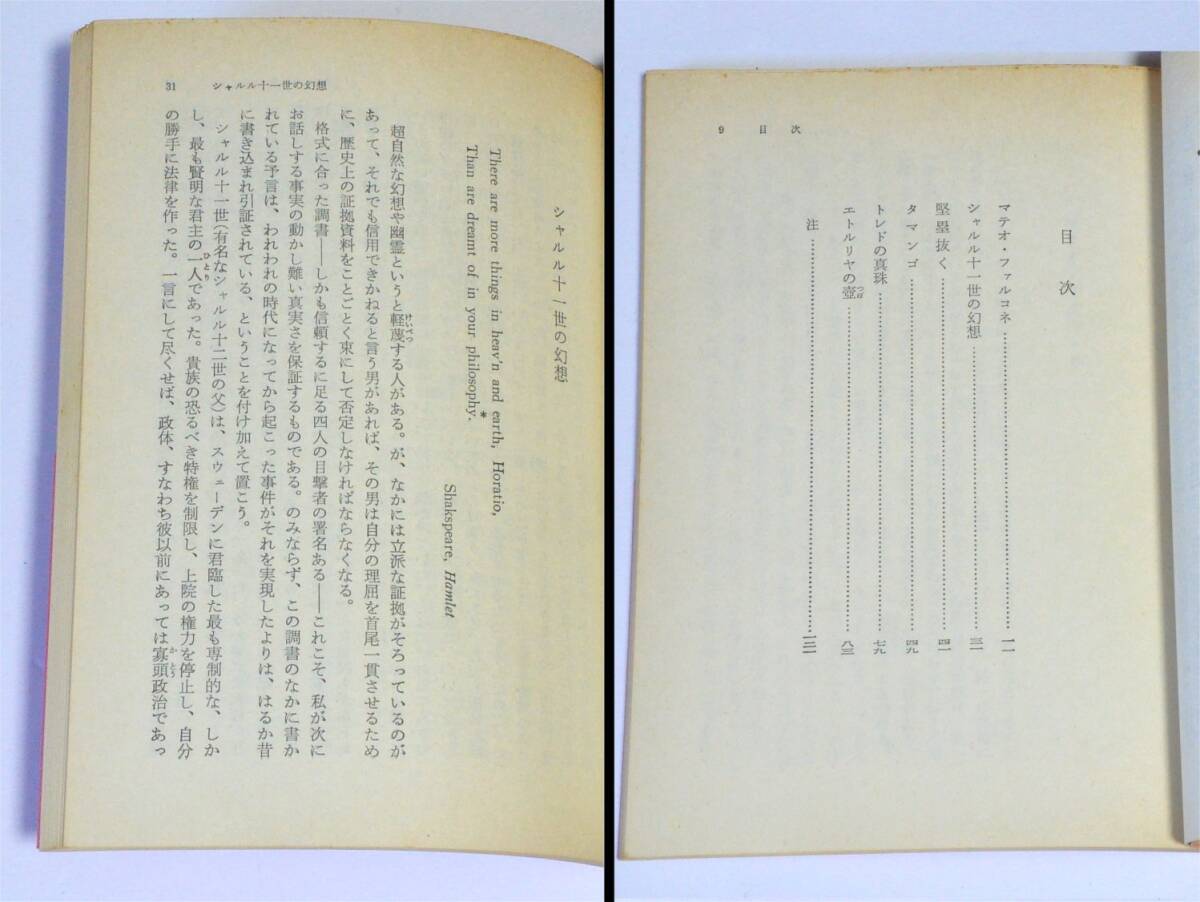 31 シャルル十一世の幻想
シャルル十一世の幻想
There are more things in heav'n and earth, Horatio,
Than are dreamt of in your philosophy.*
Shakspeare, Hamlet
超自然な幻想や幽霊というと軽蔑する人がある。が、なかには立派な証拠がそろっているのが
けいべつ
あって、それでも信用できかねると言う男があれば、その男は自分の理屈を首尾一貫させるため
に、歴史上の証拠資料をことごとく束にして否定しなければならなくなる。
格式に合った調書——しかも信頼するに足る四人の目撃者の署名ある——これこそ、私が次に
お話しする事実の動かし難い真実さを保証するものである。のみならず、この調書のなかに書か
れている予言は、われわれの時代になってから起こった事件がそれを実現したよりは、はるか昔
に書き込まれ引証されている、ということを付け加えて置こう。
シャルル十一世(有名なシャルル十二世の父)は、スウェーデンに君臨した最も専制的な、しか
し、最も賢明な君主の一人であった。貴族の恐るべき特権を制限し、上院の権力を停止し、自分
ひとり
の勝手に法律を作った。一言にして尽くせば、政体、すなわち彼以前にあっては寡頭政治であっ
かとう
9 目次
目次
マテオ・ファルコネ 一一
シャルル十一世の幻想 三一
堅塁抜く 四一
タマンゴ 四九
トレドの真珠 七九
エトルリヤの壺 八三
つぼ
注 一三一